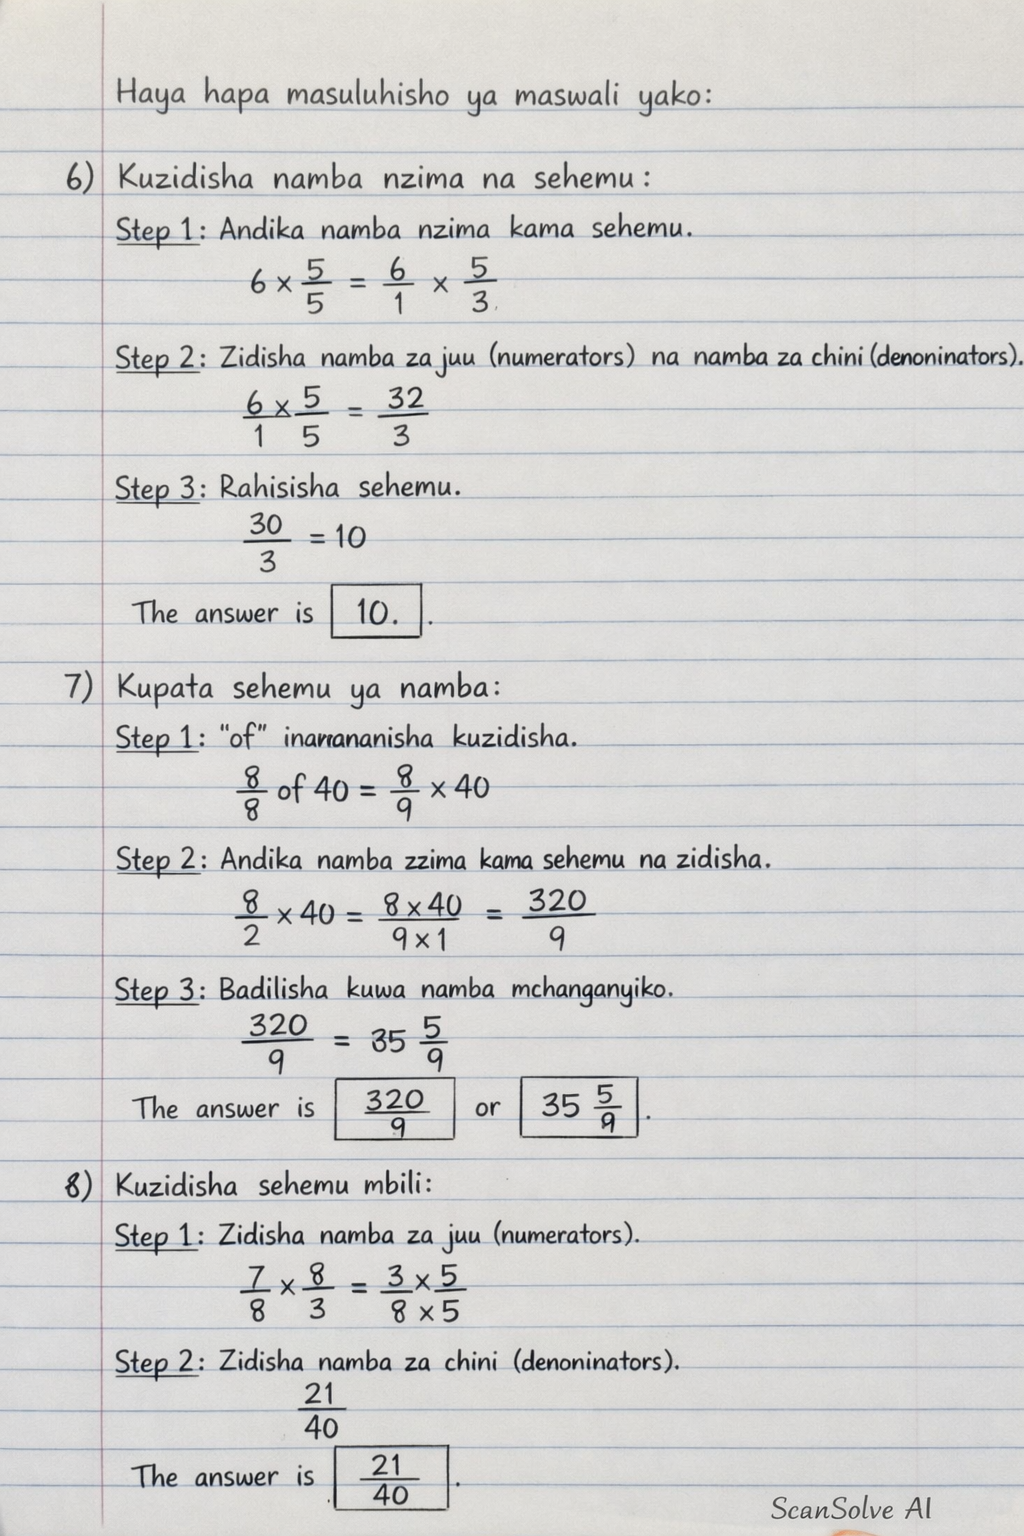 Haya hapa masuluhisho ya maswali yako:
6) Kuzidisha namba nzima na sehemu:
Step 1: Andika namba nzima kama sehemu.
6 × 5/5 = 6/1 × 5/3.
Step 2: Zidisha namba za juu (numerators) na namba za chini (denoninators).
6/1 × 5/5 = 32/3
Step 3: Rahisisha sehemu.
30/3 = 10
The answer is 10. .
7) Kupata sehemu ya namba:
Step 1: "of" kuzidisha.
8/8 of 40 = 8/9 × 40
Step 2: Andika namba zzima kama sehemu na zidisha.
8/2 × 40 = 8 × 40/9 × 1 = 320/9
Step 3: Badilisha kuwa namba mchanganyiko.
320/9 = 35 5/9
The answer is 320/9 or 35 5/9 .
8) Kuzidisha sehemu mbili:
Step 1: Zidisha namba za juu (numerators).
7/8 × 8/3 = 3 × 5/8 × 5
Step 2: Zidisha namba za chini (denoninators).
21/40
The answer is 21/40 .
ScanSolve AI